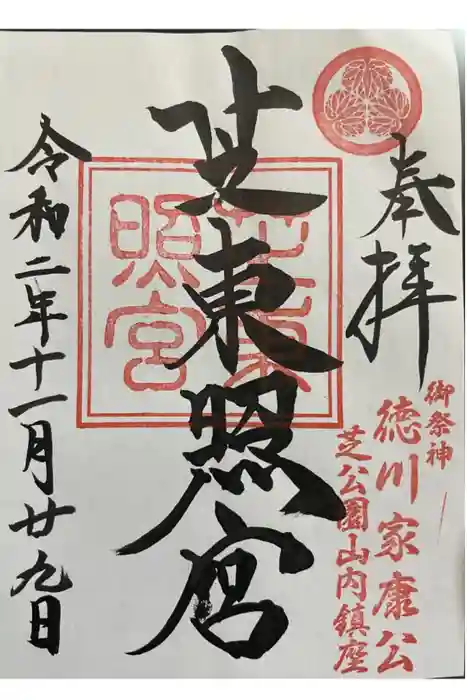 奉拝
御祭神
徳川家康公
芝公園山内鎮座
芝東照宮
芝東照宮
令和二年十一月廿九日